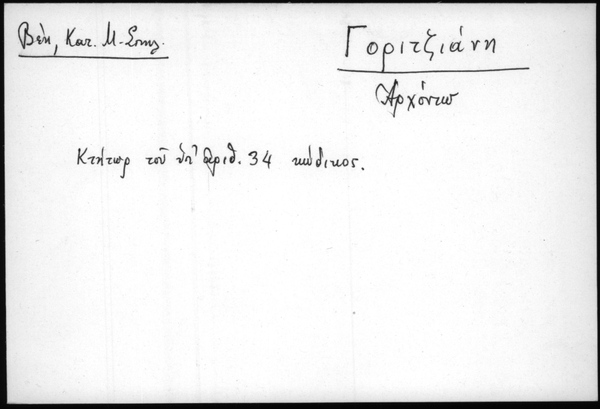 Βέη, Κατ. Μ-Σπηλ.
Γοριτζιάνη
Ἀρχόντω
Κτήτωρ τοῦ ὑπ' ἀριθ. 34 κώδικος.